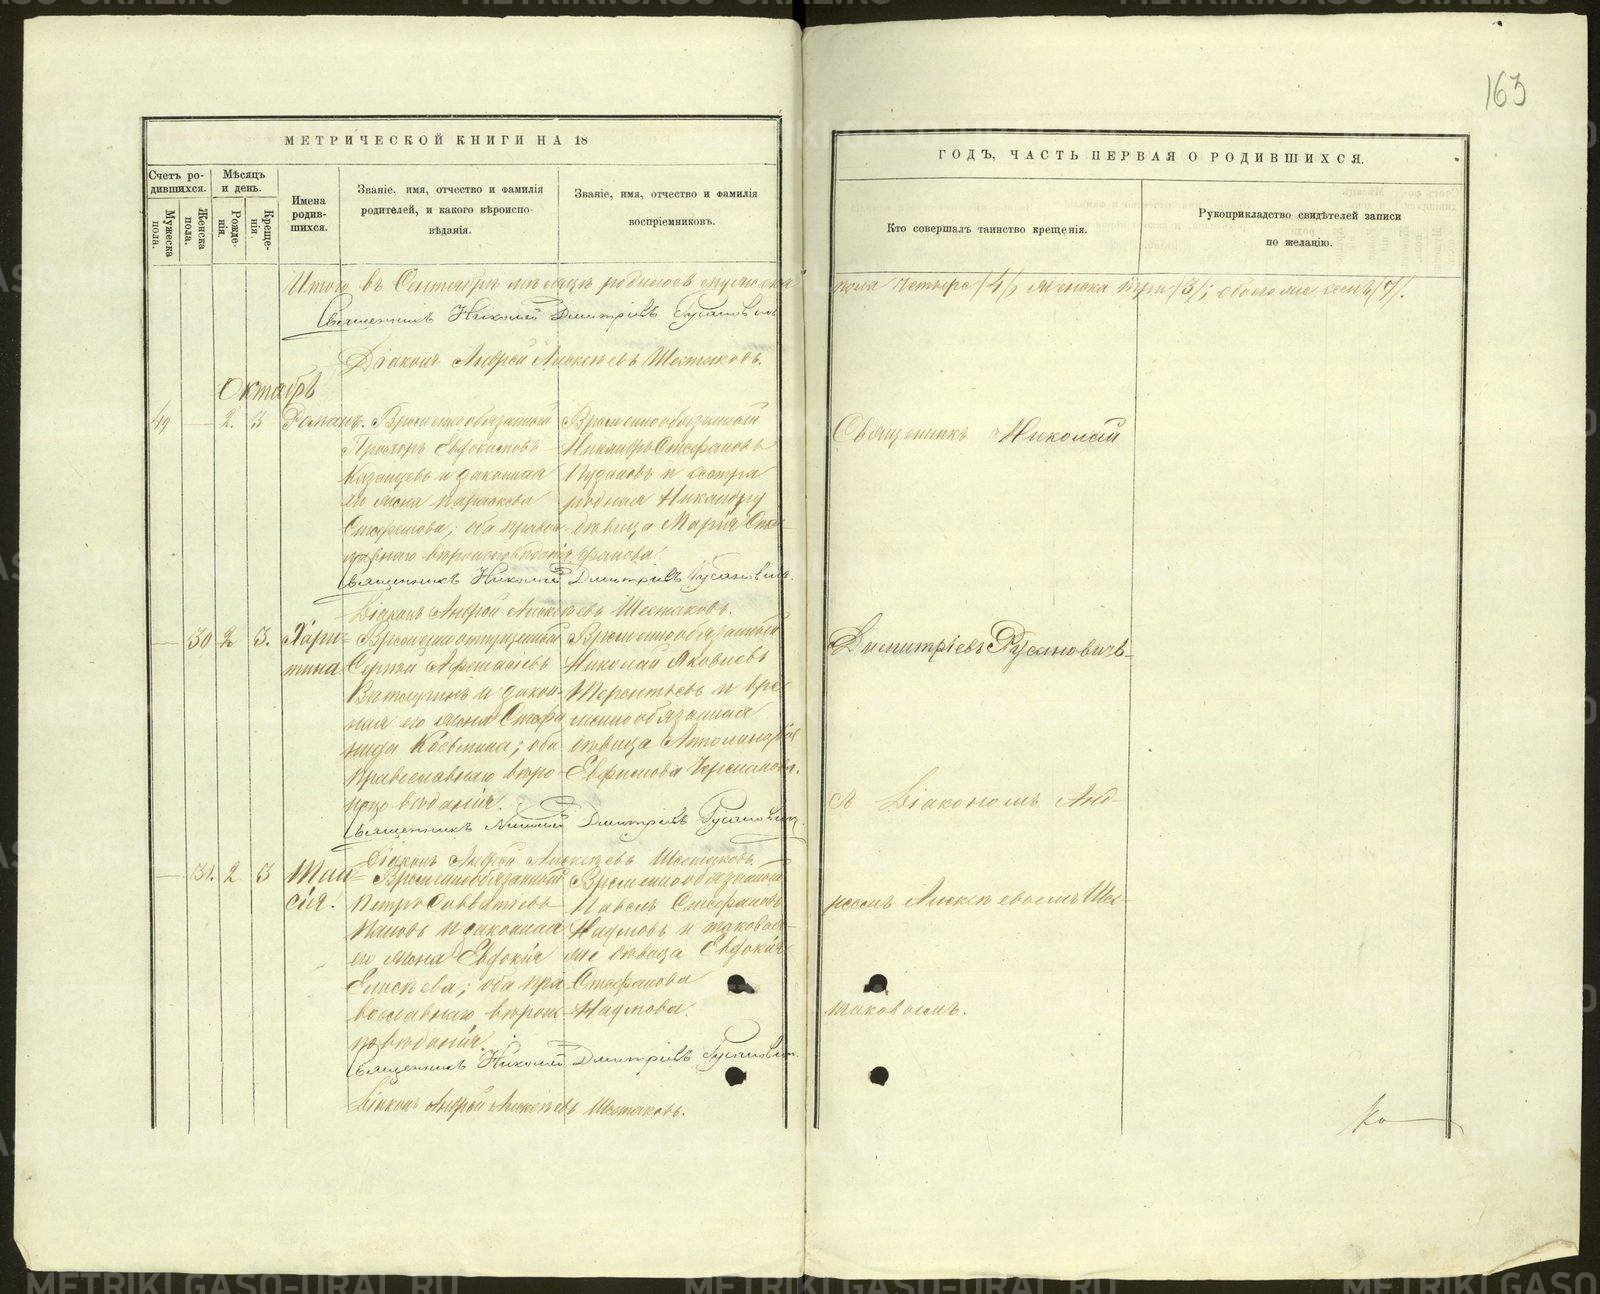 163
МЕТРИЧЕСКОЙ КНИГИ НА 18
ГОДЪ, ЧАСТЬ ПЕРВАЯ О РОДИВШИХСЯ.
Счетъ родившихся.
Мужеска пола.
Женска пола.
Мѣсяцъ и день.
Рожденія.
Крещенія.
Имена родившихся.
Званіе, имя, отчество и фамилія
родителей, и какого вѣроиспо-
вѣданія.
Званіе, имя, отчество и фамилія
воспріемниковъ.
Кто совершалъ таинство крещенія.
Рукоприкладство свидѣтелей записи
по желанію.
Итого въ Сентябрѣ мѣсяцѣ родилось мужеска
пола четыре /4/, женска три /3/; обоего же семь /7/.
Священникъ Николай Димитріевъ Русановичъ
Діаконъ Андрей Алексѣевъ Шестаковъ.
Октябрь
49 — 2. 3 Романъ.
Временнообязанный
Прохоръ
Казанцевъ и законная
его жена Параскева
Стефанова; оба право-
славнаго вѣроисповѣданія
Временнообязанный
Никандръ Стефановъ
и сестра
родная Никандру
дѣвица Марія Сте-
фанова.
Священникъ Николай Димитріевъ Русановичъ.
Діаконъ Андрей Алексѣевъ Шестаковъ.
— 30 2 3. Хари-
тина
Сергѣй Афанасіевъ
и закон-
ная его жена Стефа-
нида Косьмина; оба
православнаго вѣро-
исповѣданія.
Временнообязанный
Николай Яковлевъ
Терентьевъ и вре-
меннообязанная
дѣвица
Евфимова
Священникъ Николай Димитріевъ Русановичъ
Діаконъ Андрей Алексѣевъ Шестаковъ.
— 31. 2 3 Таи-
сія.
Временнообязанный
Петръ Савватіевъ
и законная
его жена Евдокія
Елисѣева; оба пра-
вославнаго вѣроис-
повѣданія.
Временнообязанный
Павелъ Стефановъ
Наумовъ и таковая
же дѣвица Евдокія
Стефанова
Наумова.
Священникъ Николай Димитріевъ Русановичъ.
Діаконъ Андрей Алексѣевъ Шестаковъ.
Священникъ Николай
Димитріевъ Русановичъ
съ Діакономъ Анд-
реемъ Алексѣевымъ Шес-
таковымъ.
METRIKI.GASO-URAL.RU